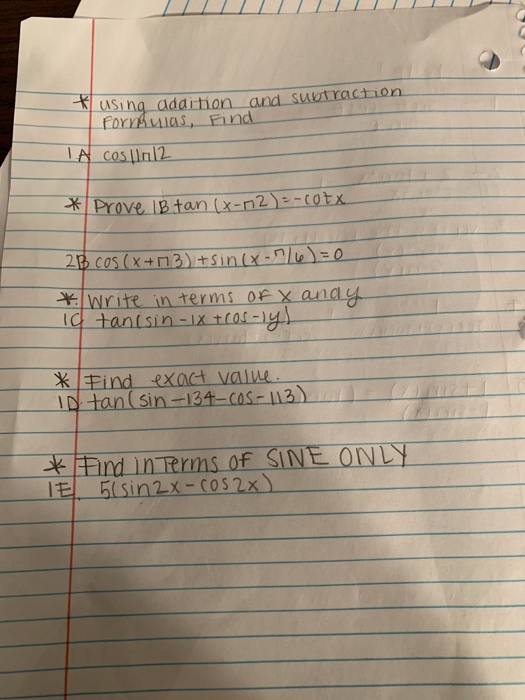 * using addition and subtraction
Formulas, Find
1A cos11π12
* Prove 1B tan (x-π2)=-cotx
2B cos(x+π3)+sin(x-π/6)=0
* Write in terms of x andy
1C tan(sin-1x+cos-1y)
* Find exact value.
1D tan(sin-134-cos-113)
* Find in Terms of SINE ONLY
1E. 5(sin2x-cos2x)